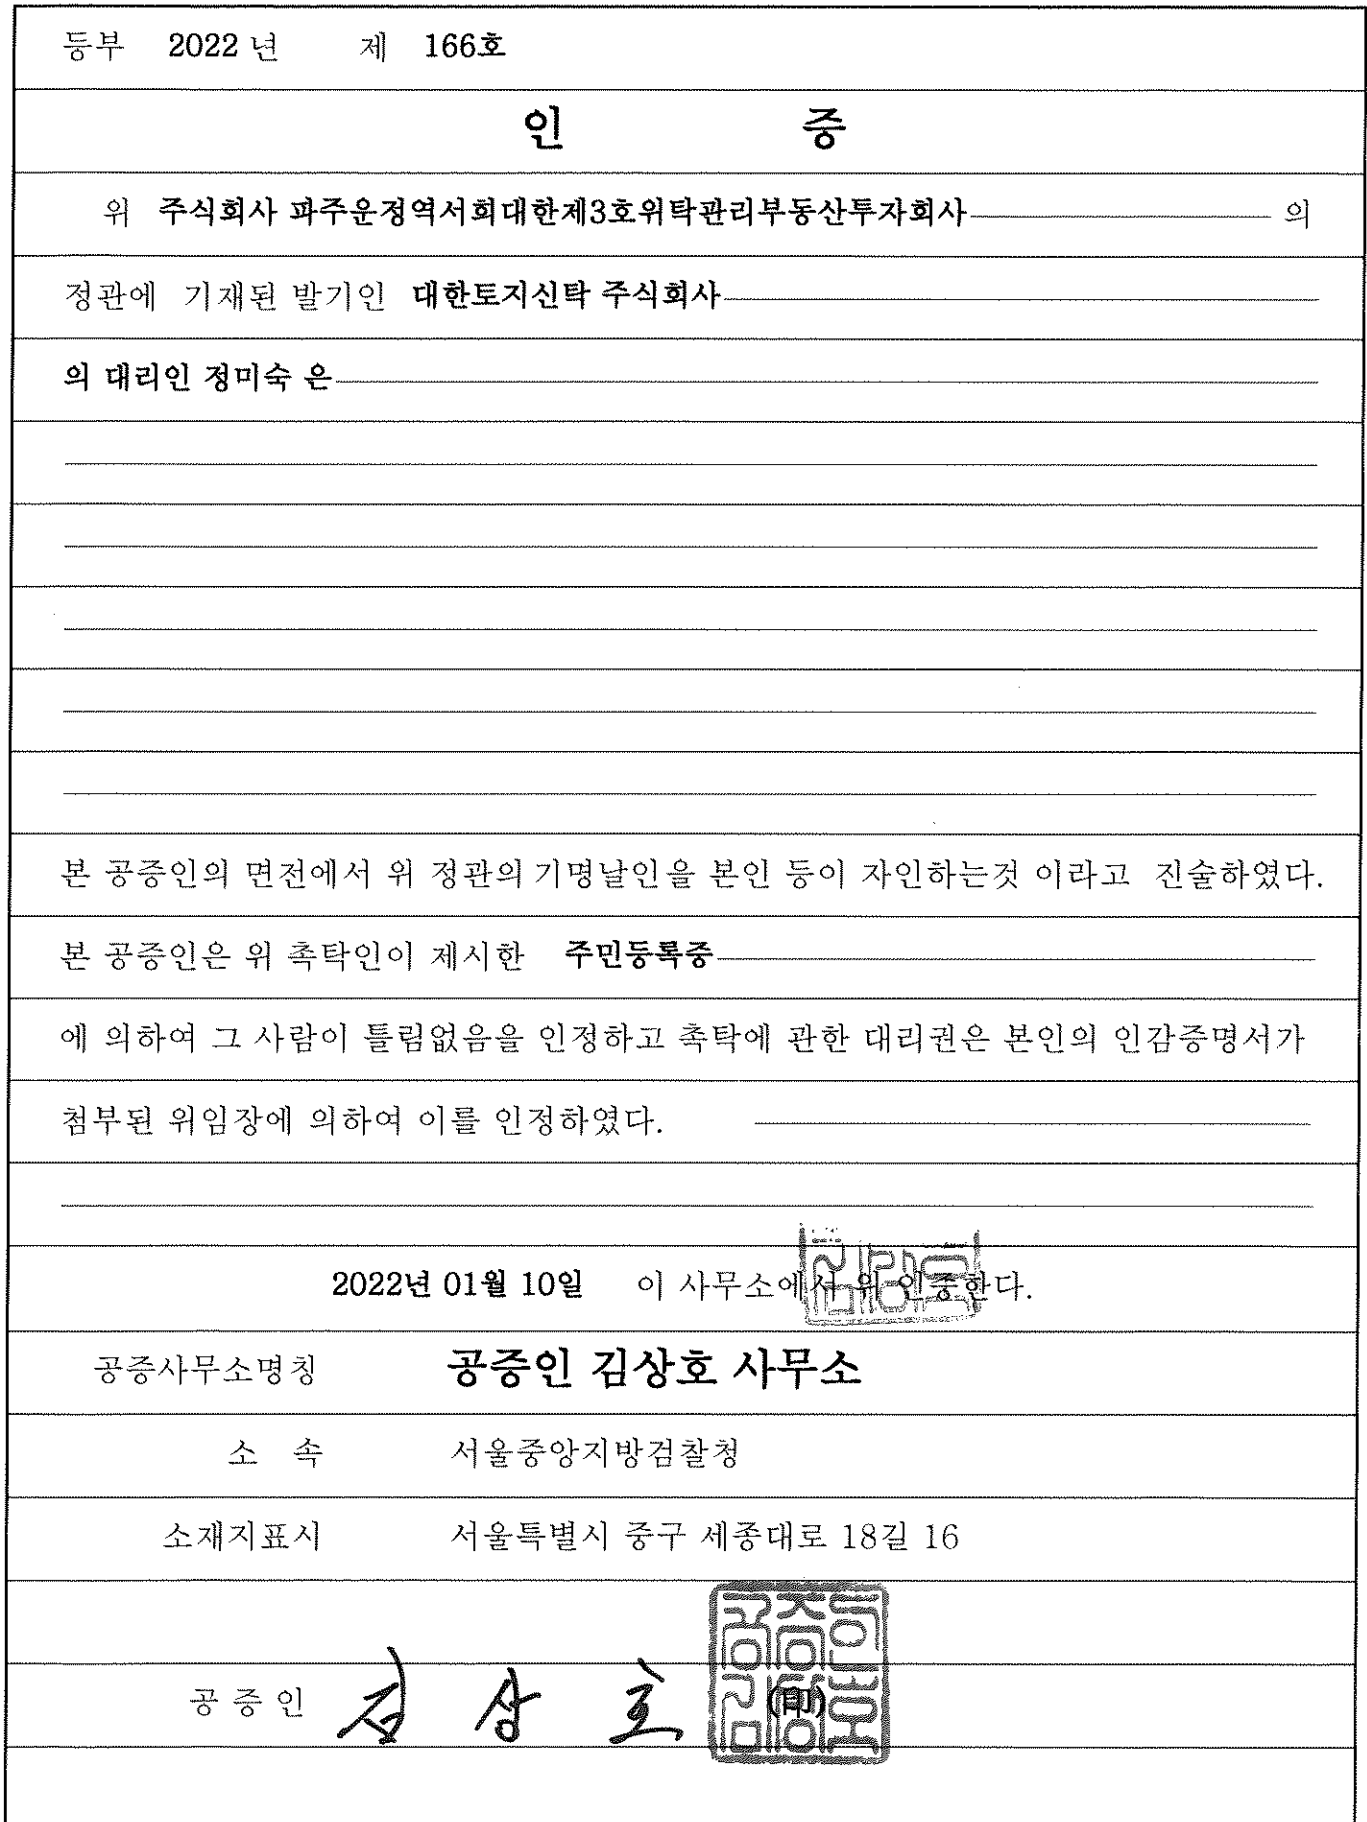 등부 2022 년 제 166호
인 증
위 주식회사 파주운정역서희대한제3호위탁관리부동산투자회사 의
정관에 기재된 발기인 대한토지신탁 주식회사
의 대리인 정미숙 은
본 공증인의 면전에서 위 정관의 기명날인을 본인 등이 자인하는것 이라고 진술하였다.
본 공증인은 위 촉탁인이 제시한 주민등록증
에 의하여 그 사람이 틀림없음을 인정하고 촉탁에 관한 대리권은 본인의 인감증명서가
첨부된 위임장에 의하여 이를 인정하였다.
2022년 01월 10일 이 사무소에서 위 인증한다.
공증사무소명칭 공증인 김상호 사무소
소 속 서울중앙지방검찰청
소재지표시 서울특별시 중구 세종대로 18길 16
공 증 인 김 상 호 (印)
공증인김상호